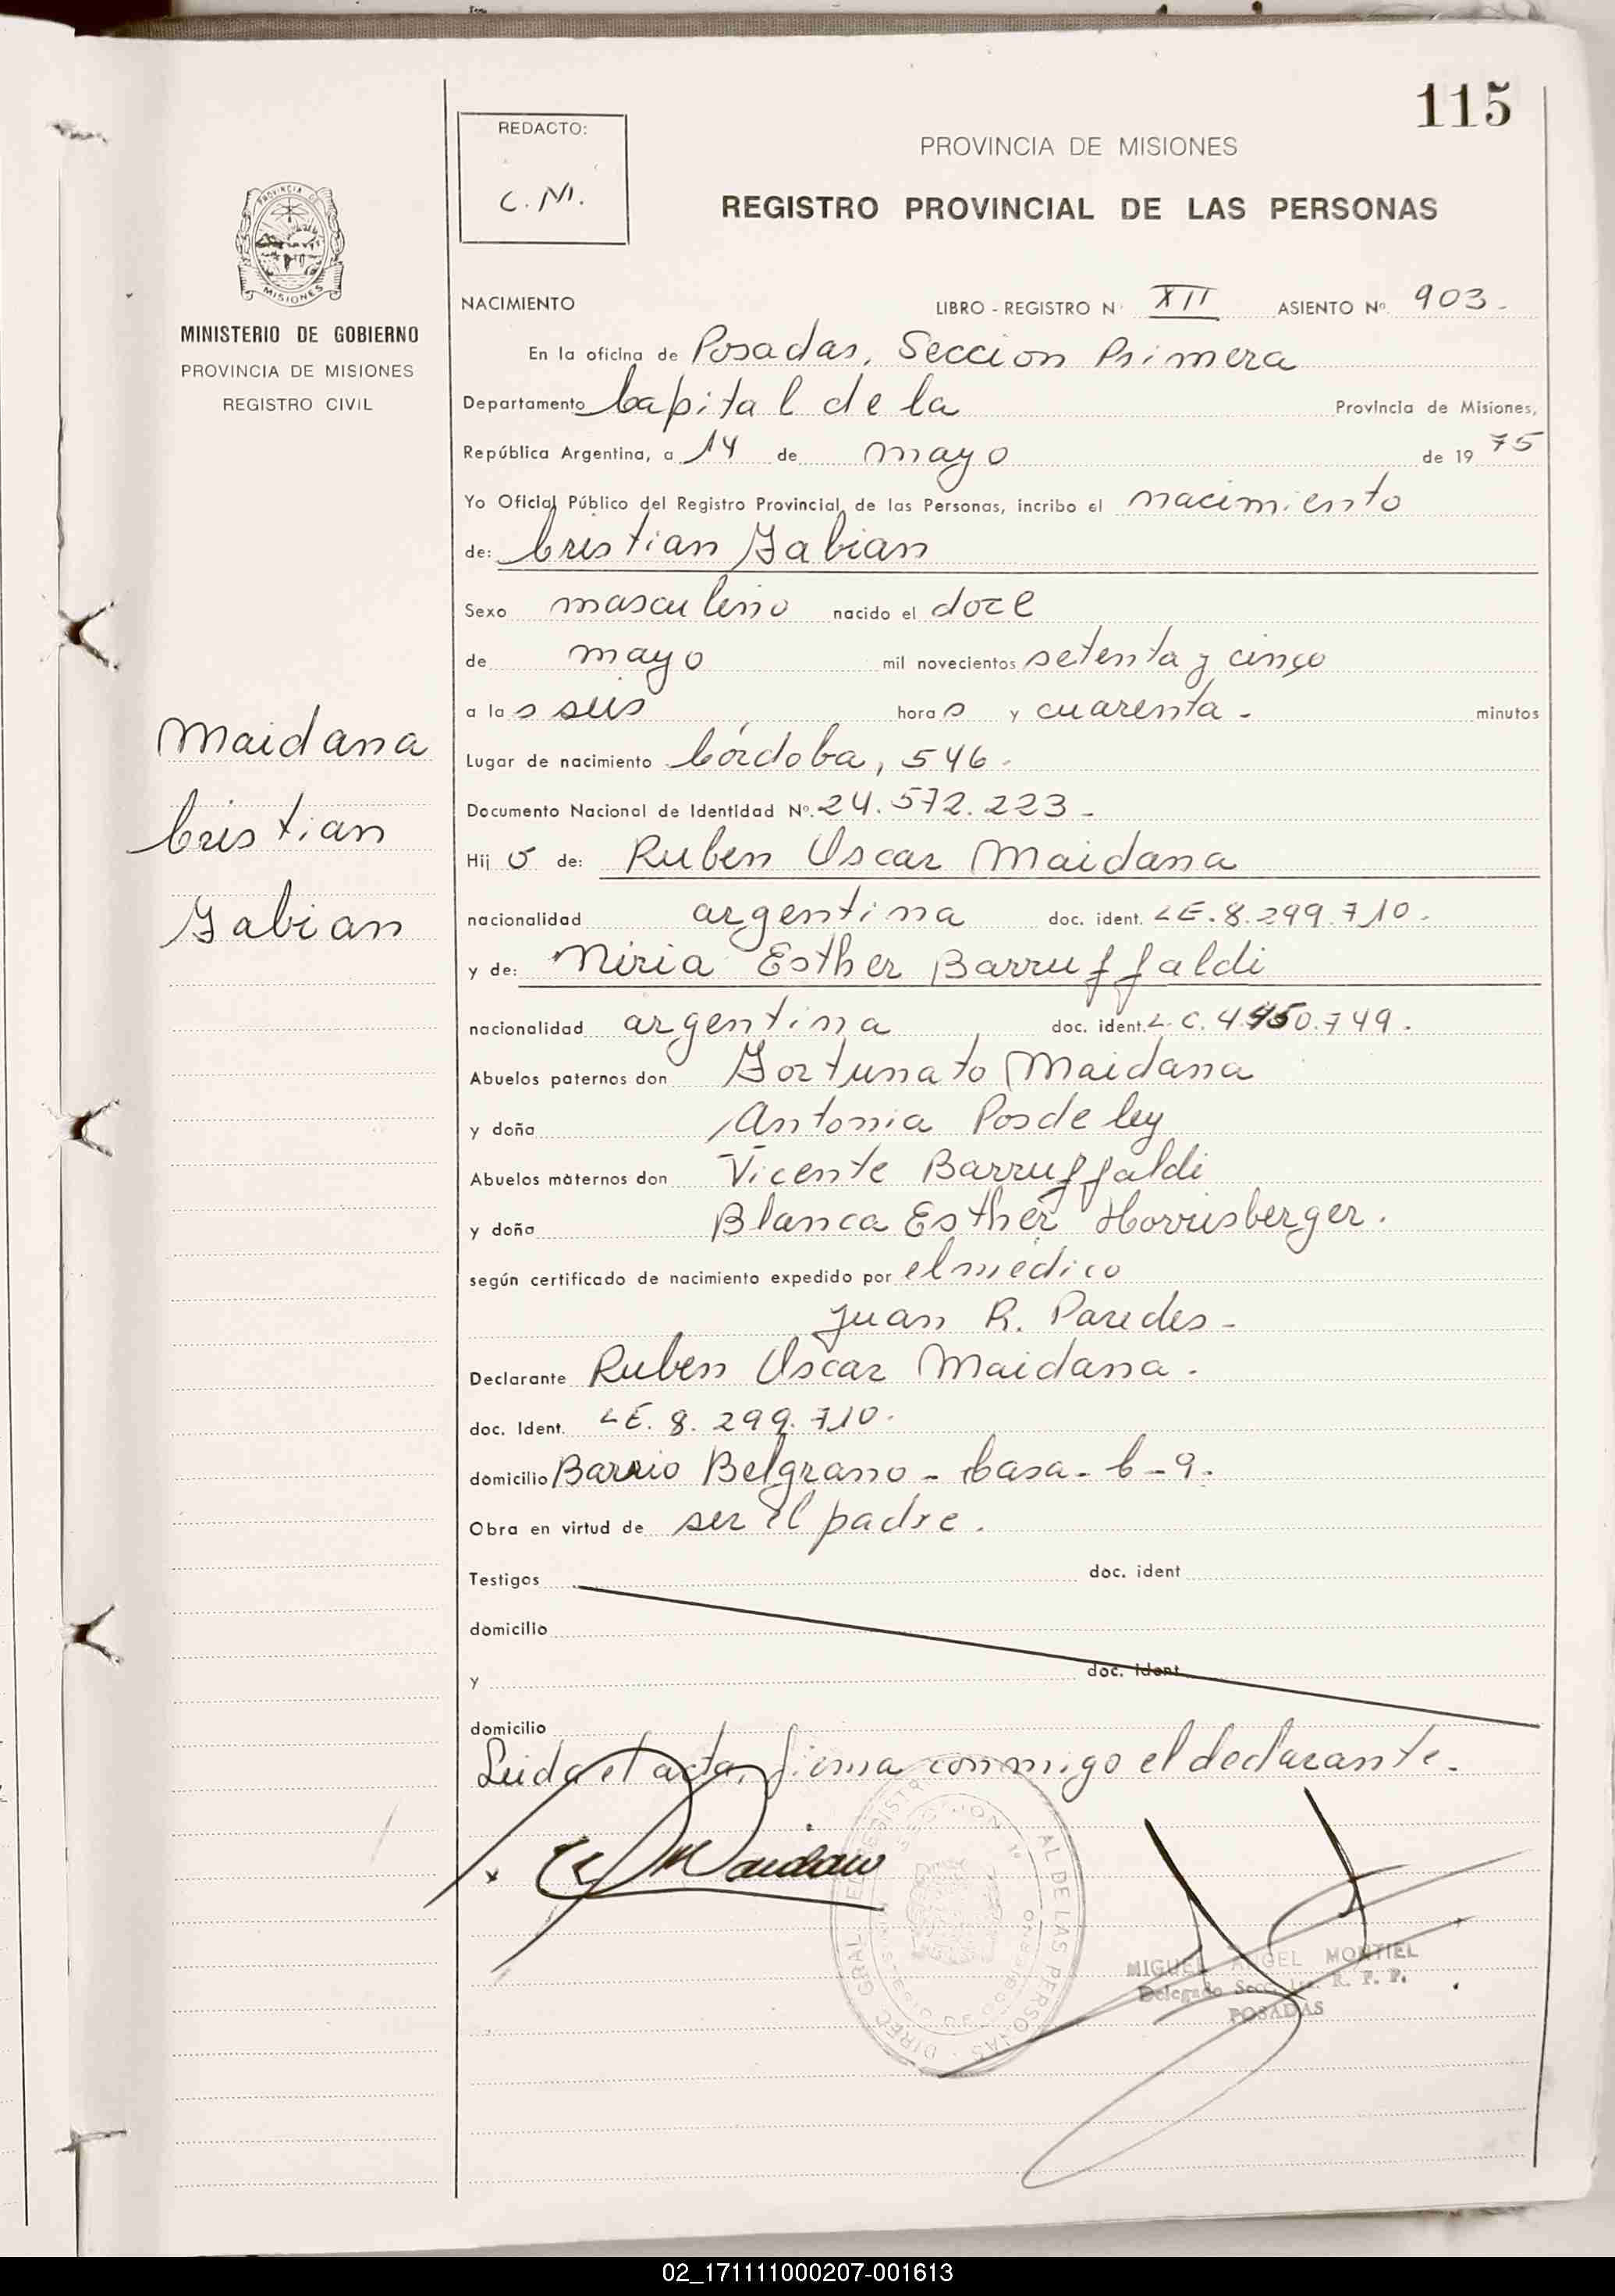 115
REDACTO:
C. M.
PROVINCIA DE MISIONES
REGISTRO PROVINCIAL DE LAS PERSONAS
PROVINCIA DE
MISIONES
MINISTERIO DE GOBIERNO
PROVINCIA DE MISIONES
REGISTRO CIVIL
Maidana
Cristian
Fabian
NACIMIENTO LIBRO - REGISTRO Nº XII ASIENTO Nº 903-
En la oficina de Posadas, Seccion Primera
Departamento Capital de la Provincia de Misiones,
República Argentina, a 14 de mayo de 1975
Yo Oficial Público del Registro Provincial de las Personas, incribo el nacimiento
de: Cristian Fabian
Sexo masculino nacido el doce
de mayo mil novecientos setenta y cinco
a las seis horas y cuarenta - minutos
Lugar de nacimiento Córdoba, 546-
Documento Nacional de Identidad Nº. 24.572.223-
Hijo de: Ruben Oscar Maidana
nacionalidad argentina doc. ident. LE. 8.299.710.
y de: Niria Esther Barruffaldi
nacionalidad argentina doc. ident. L.C. 749.
Abuelos paternos don Fortunato Maidana
y doña Antonia Posdeley
Abuelos maternos don Vicente Barruffaldi
y doña Blanca Esther Horrisberger.
según certificado de nacimiento expedido por el médico
Juan R. Paredes-
Declarante Ruben Oscar Maidana.
doc. Ident. LE. 8.299.710.
domicilio Barrio Belgrano - Casa - C-9.
Obra en virtud de ser el padre.
Testigos doc. ident
domicilio
y doc. ident
domicilio
Leida el acta, firma conmigo el declarante.
Maidana
MIGUEL ANGEL MONTIEL
Delegado Secc. 1ra. R. P. P.
POSADAS
02_171111000207-001613